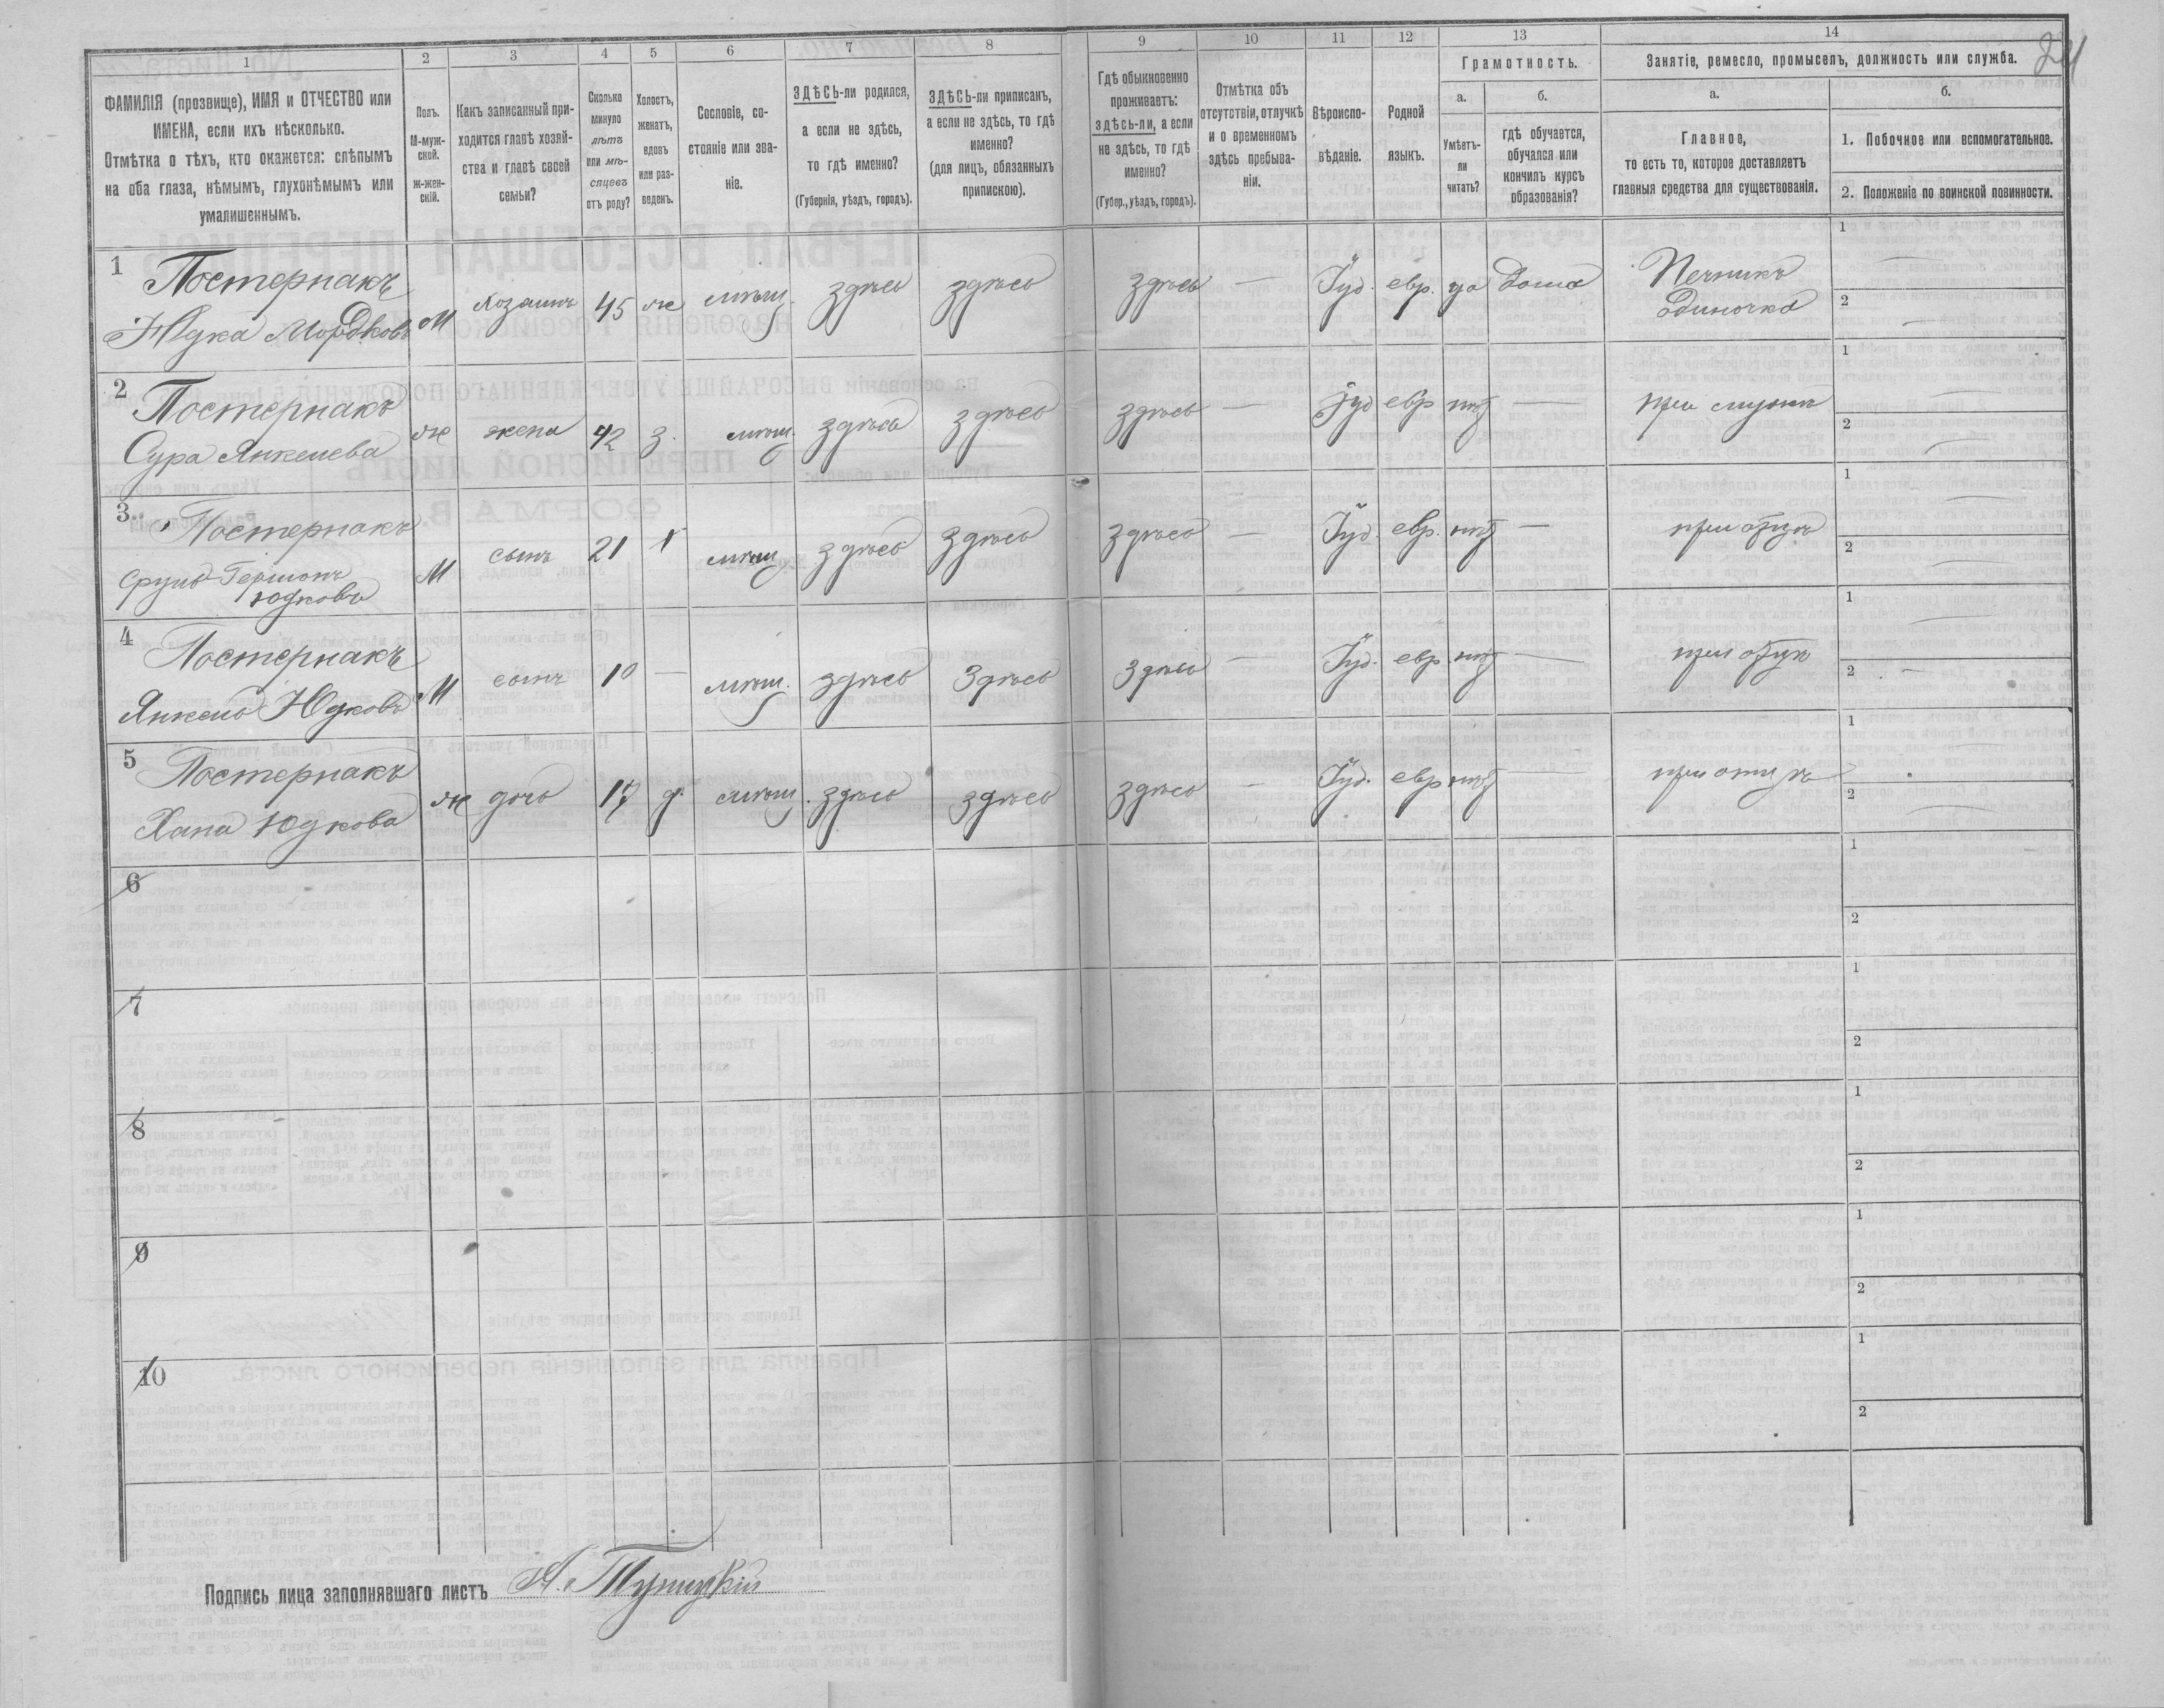 24
1 2 3 4 5 6 7 8 9 10 11 12 13 14
ФАМИЛІЯ (прозвище), ИМЯ и ОТЧЕСТВО или
ИМЕНА, если ихъ нѣсколько.
Отмѣтка о тѣхъ, кто окажется: слѣпымъ
на оба глаза, нѣмымъ, глухонѣмымъ или
умалишеннымъ.
Полъ.
М-муж-
ской.
ж-жен-
скій.
Какъ записанный при-
ходится главѣ хозяй-
ства и главѣ своей
семьи?
Сколько
минуло
лѣтъ
или мѣ-
сяцевъ
отъ роду?
Холостъ,
женатъ,
вдовъ
или раз-
веденъ.
Сословіе, со-
стояніе или зва-
ніе.
ЗДѢСЬ-ли родился,
а если не здѣсь,
то гдѣ именно?
(Губернія, уѣздъ, городъ).
ЗДѢСЬ-ли приписанъ,
а если не здѣсь, то гдѣ
именно?
(для лицъ, обязанныхъ
припискою).
Гдѣ обыкновенно
проживаетъ:
здѣсь-ли, а если
не здѣсь, то гдѣ
именно?
(Губер., уѣздъ, городъ).
Отмѣтка объ
отсутствіи, отлучкѣ
и о временномъ
здѣсь пребыва-
ніи.
Вѣроиспо-
вѣданіе.
Родной
языкъ.
Грамотность.
а.
Умѣетъ-
ли
читать?
б.
гдѣ обучается,
обучался или
кончилъ курсъ
образованія?
Занятіе, ремесло, промыселъ, должность или служба.
а.
Главное,
то есть то, которое доставляетъ
главныя средства для существованія.
б.
1. Побочное или вспомогательное.
2. Положеніе по воинской повинности.
1 Постернакъ
Юдка Мордковъ М Хозяинъ 45 ж мѣщ. здѣсь здѣсь здѣсь — Іуд. евр. да Дома Печникъ
Одиночка
1 —
2 —
2 Постернакъ
Сура Янкелева ж жена 42 з. мѣщ. здѣсь здѣсь здѣсь — Іуд евр нѣт — при мужѣ
1 —
2 —
3 Постернакъ
Сруль Гершонъ
Юдковъ М сынъ 21 х мѣщ здѣсь здѣсь здѣсь — Іуд. евр. нѣт — при отцѣ
1 —
2 —
4 Постернакъ
Янкель Юдковъ М сынъ 10 — мѣщ. здѣсь здѣсь здѣсь — Іуд. евр. нѣт — при отцѣ
1 —
2 —
5 Постернакъ
Хана Юдкова ж дочь 17 д. мѣщ. здѣсь здѣсь здѣсь — Іуд. евр нѣт — при отцѣ
1
2 —
6
1
2
7
1
2
8
1
2
9
1
2
10
1
2
Подпись лица заполнявшаго листъ